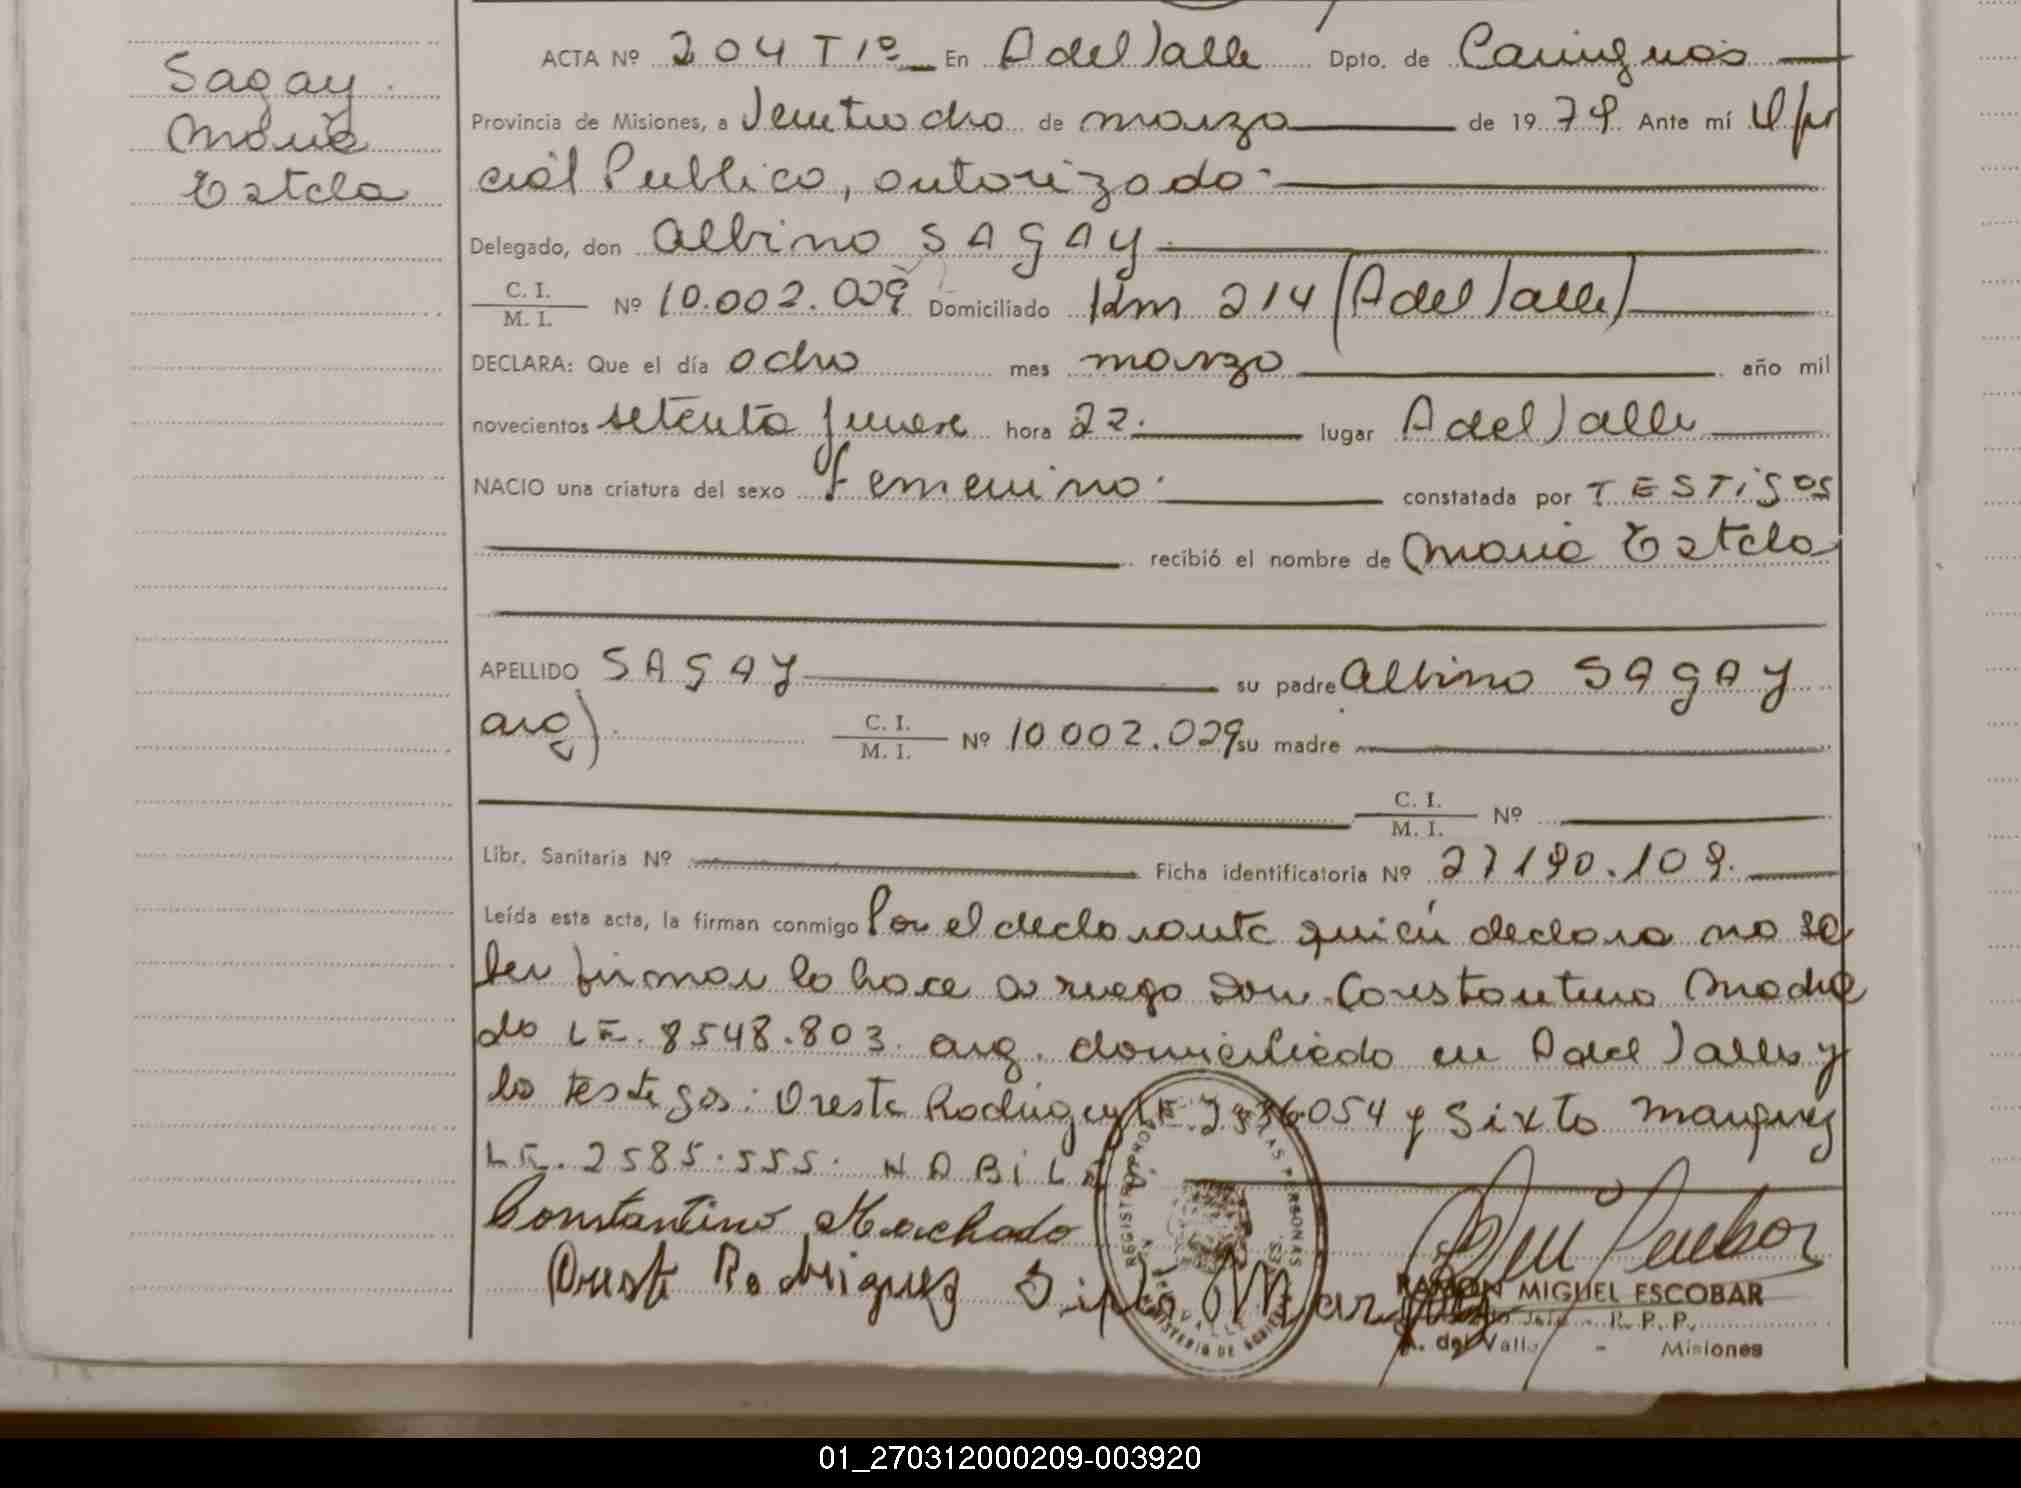 Sagay
María
Estela
ACTA Nº 204 Tº 1º En A del Valle Dpto. de Cainguás
Provincia de Misiones, a Veintiocho de marzo de 1979 Ante mí Ofi
cial Publico, autorizado
Delegado, don Albino SAGAY
C. I.
M. I. Nº 10.002.029 Domiciliado Km 214 (A del Valle)
DECLARA: Que el día ocho mes marzo año mil
novecientos setenta y nueve hora 22. lugar A del Valle
NACIO una criatura del sexo femenino constatada por TESTigos
recibió el nombre de María Estela
APELLIDO SAGAY su padre Albino SAGAY
arg) C. I.
M. I. Nº 10 002.029 su madre
C. I.
M. I. Nº
Libr. Sanitaria Nº Ficha identificatoria Nº 27190.109.
Leída esta acta, la firman conmigo Por el declarante quien declara no sa
ber firmar lo hace a ruego Don Constantino Macha
do LE. 8548.803. arg. domiciliado en A del Valle y
los testigos: Oreste Rodriguez LE. 054 y Sixto Marquez
LE. 2585.555. HABILE
Constantino Machado
Oreste Rodriguez Sixto Mar
RAMON MIGUEL ESCOBAR
Jefe - R. P. P.
A. del Valle - Misiones
01_270312000209-003920